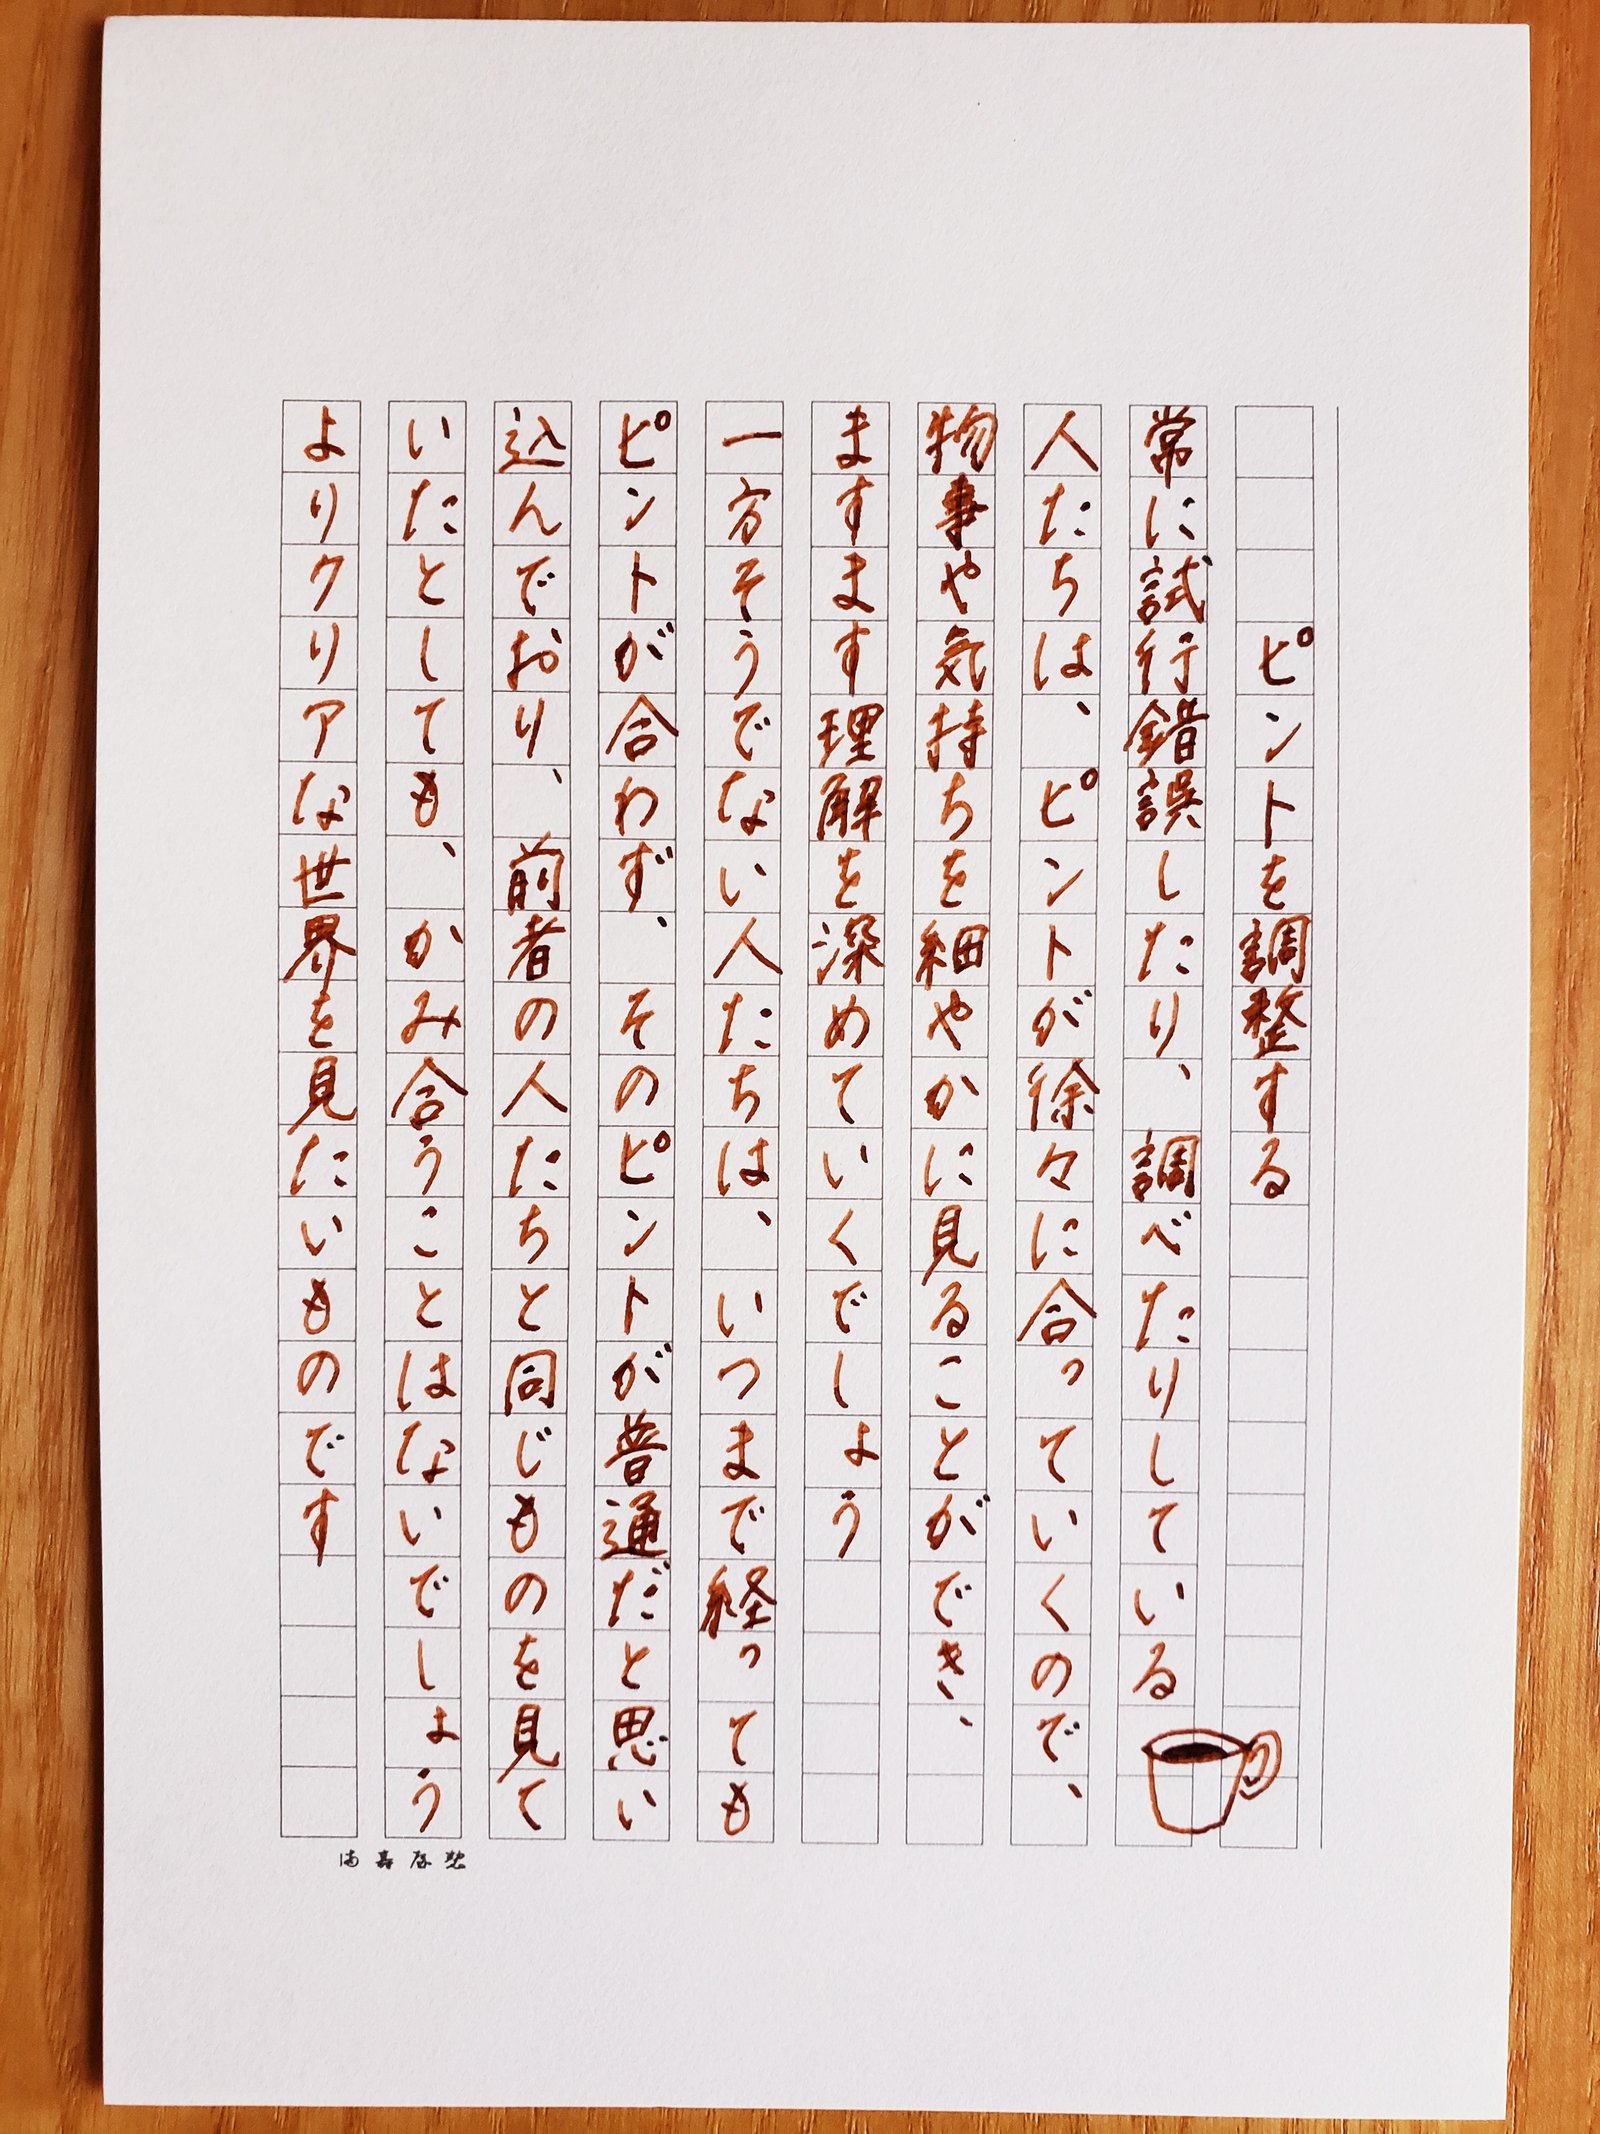 ピントを調整する
常に試行錯誤したり、調べたりしている
人たちは、ピントが徐々に合っていくので、
物事や気持ちを細やかに見ることができ、
ますます理解を深めていくでしょう
一方そうでない人たちは、いつまで経っても
ピントが合わず、そのピントが普通だと思い
込んでおり、前者の人たちと同じものを見て
いたとしても、かみ合うことはないでしょう
よりクリアな世界を見たいものです